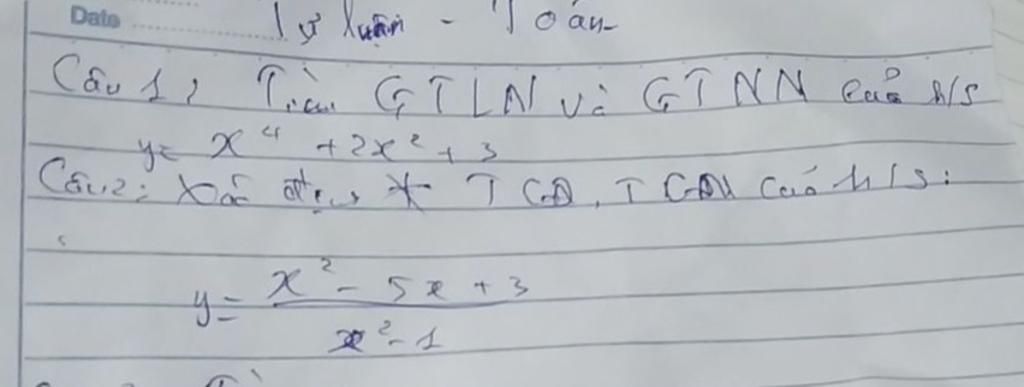 Date Tự luận - Toán
Câu 1: Tìm GTLN và GTNN của h/s
y= x⁴ + 2x² + 3
Câu 2: Xác định TCĐ, TCN của h/s:
y= (x² - 5x + 3)/(x² - 1)